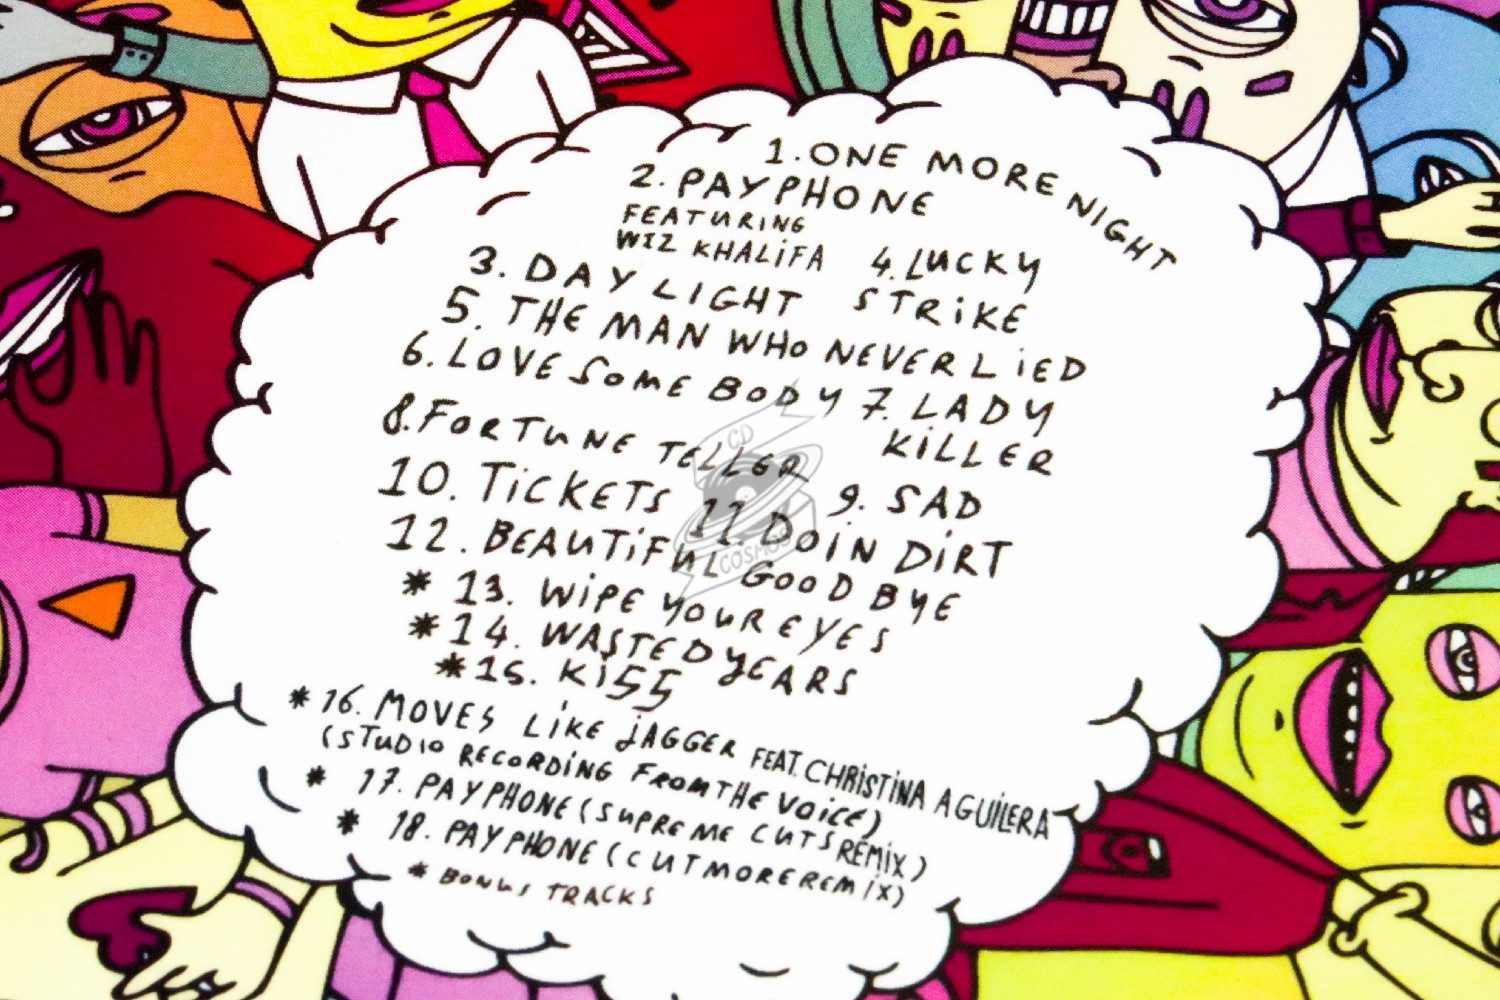 1. ONE MORE NIGHT
2. PAYPHONE
FEATURING
WIZ KHALIFA
3. DAYLIGHT
4. LUCKY
STRIKE
5. THE MAN WHO NEVER LIED
6. LOVE SOMEBODY
7. LADY
KILLER
8. FORTUNE TELLER
9. SAD
10. TICKETS
11. DOIN DIRT
12. BEAUTIFUL GOODBYE
* 13. WIPE YOUR EYES
* 14. WASTED YEARS
* 15. KISS
* 16. MOVES LIKE JAGGER FEAT. CHRISTINA AGUILERA
(STUDIO RECORDING FROM THE VOICE)
* 17. PAYPHONE (SUPREME CUTS REMIX)
* 18. PAYPHONE (CUTMORE REMIX)
* BONUS TRACKS
CD
COSMOS